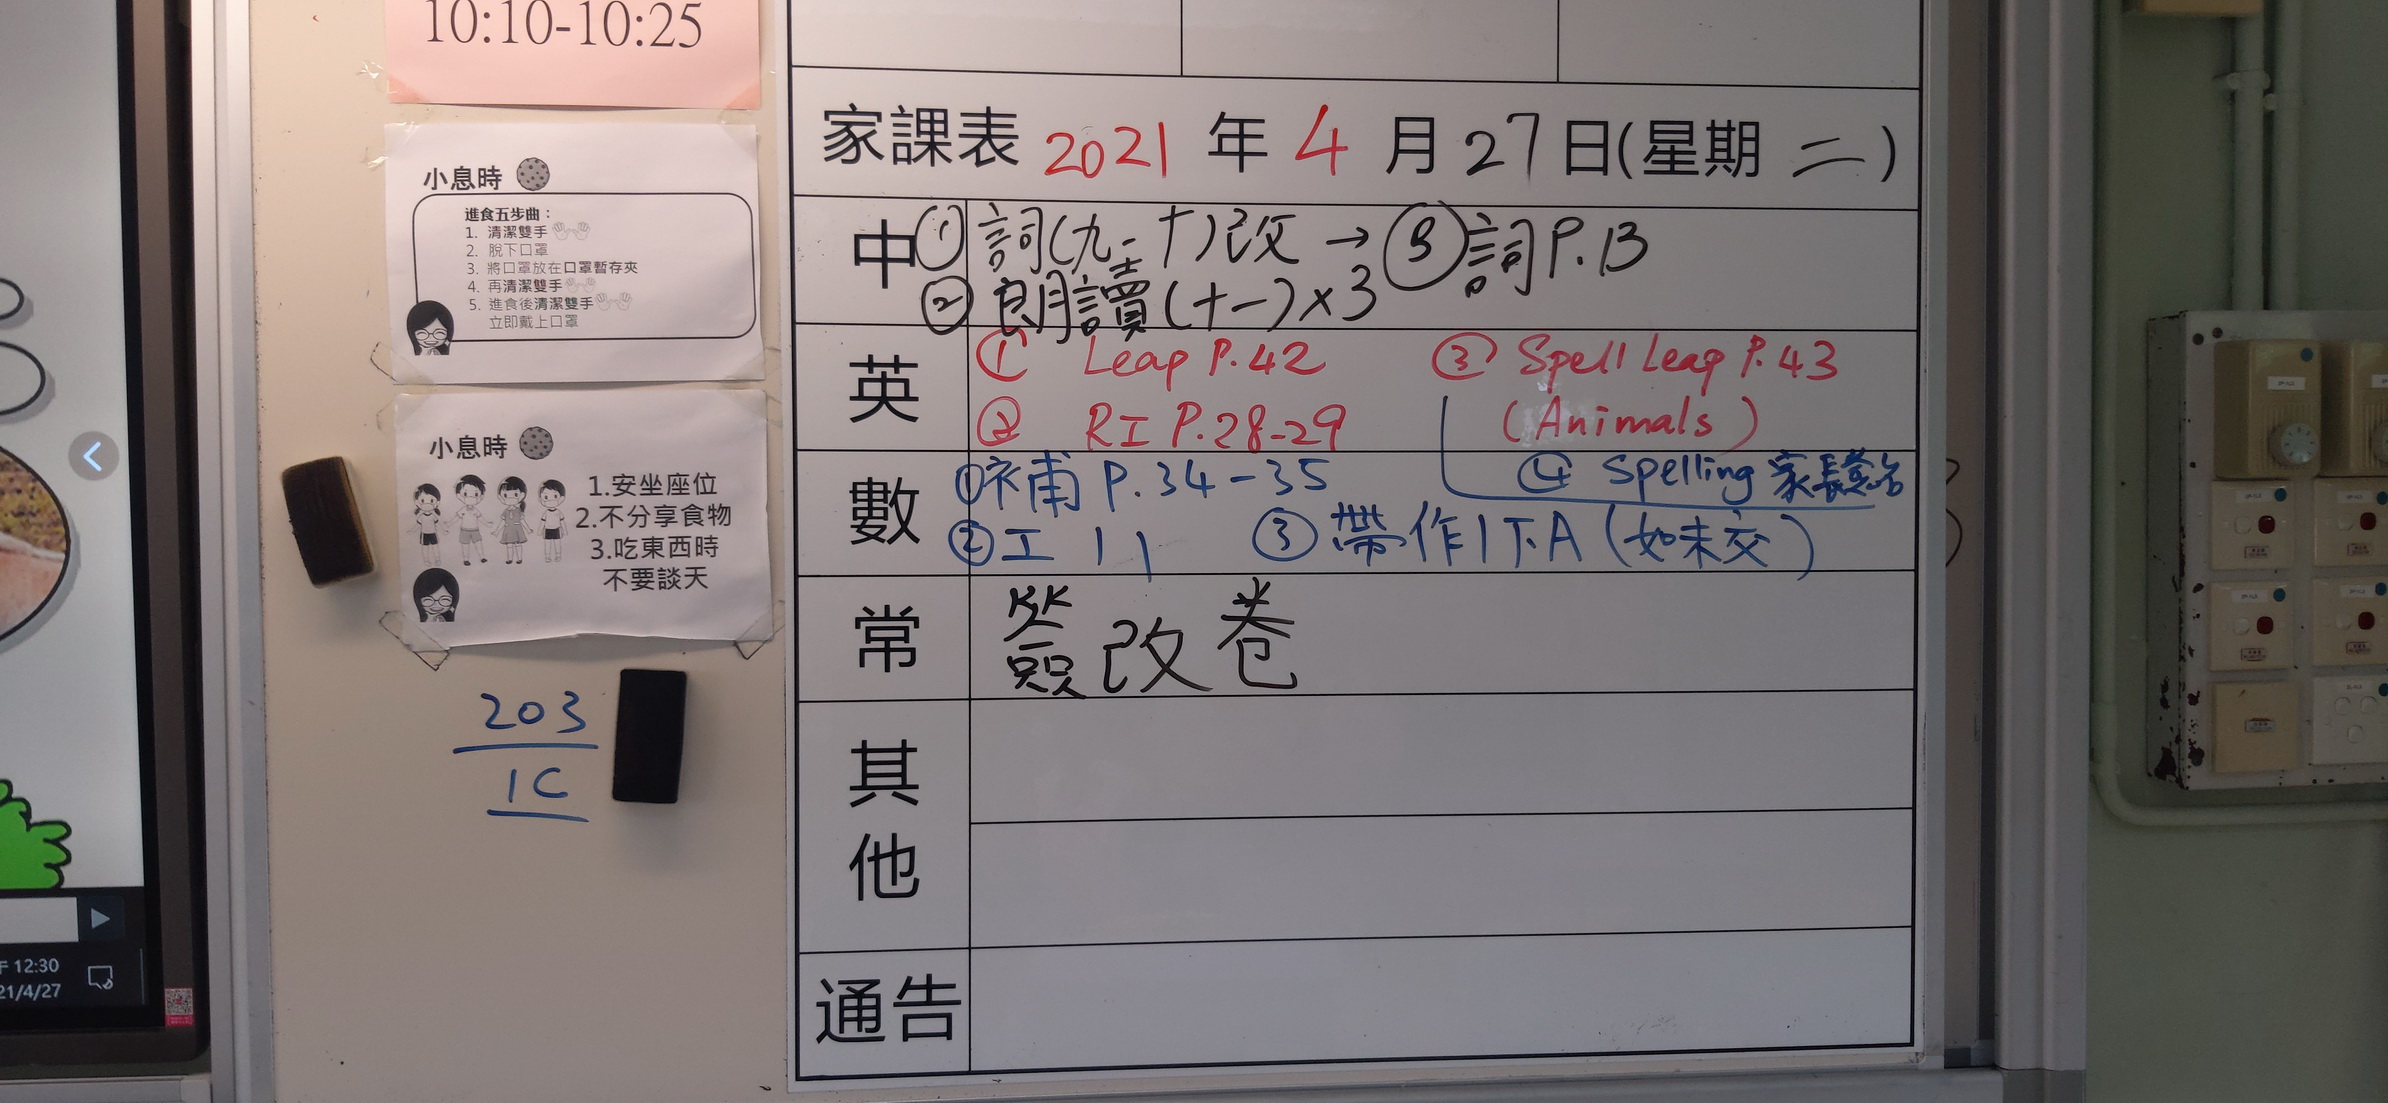 10:10-10:25
小息時
進食五步曲：
1. 清潔雙手
2. 脫下口罩
3. 將口罩放在口罩暫存夾
4. 再清潔雙手
5. 進食後清潔雙手
立即戴上口罩
小息時
1.安坐座位
2.不分享食物
3.吃東西時
不要談天
203
1C
12:30
21/4/27
家課表 2021 年 4 月 27 日(星期 二)
中 ① 詞(九至十)改 → ③ 詞P.13
② 朗讀(十一)×3
英 ① Leap P.42 ③ Spell Leap P.43
② RI P.28-29 (Animals)
④ Spelling 家長簽名
數 ① 補 P.34-35
② 工 11 ③ 帶作1下A (如未交)
常 簽改卷
其他
通告